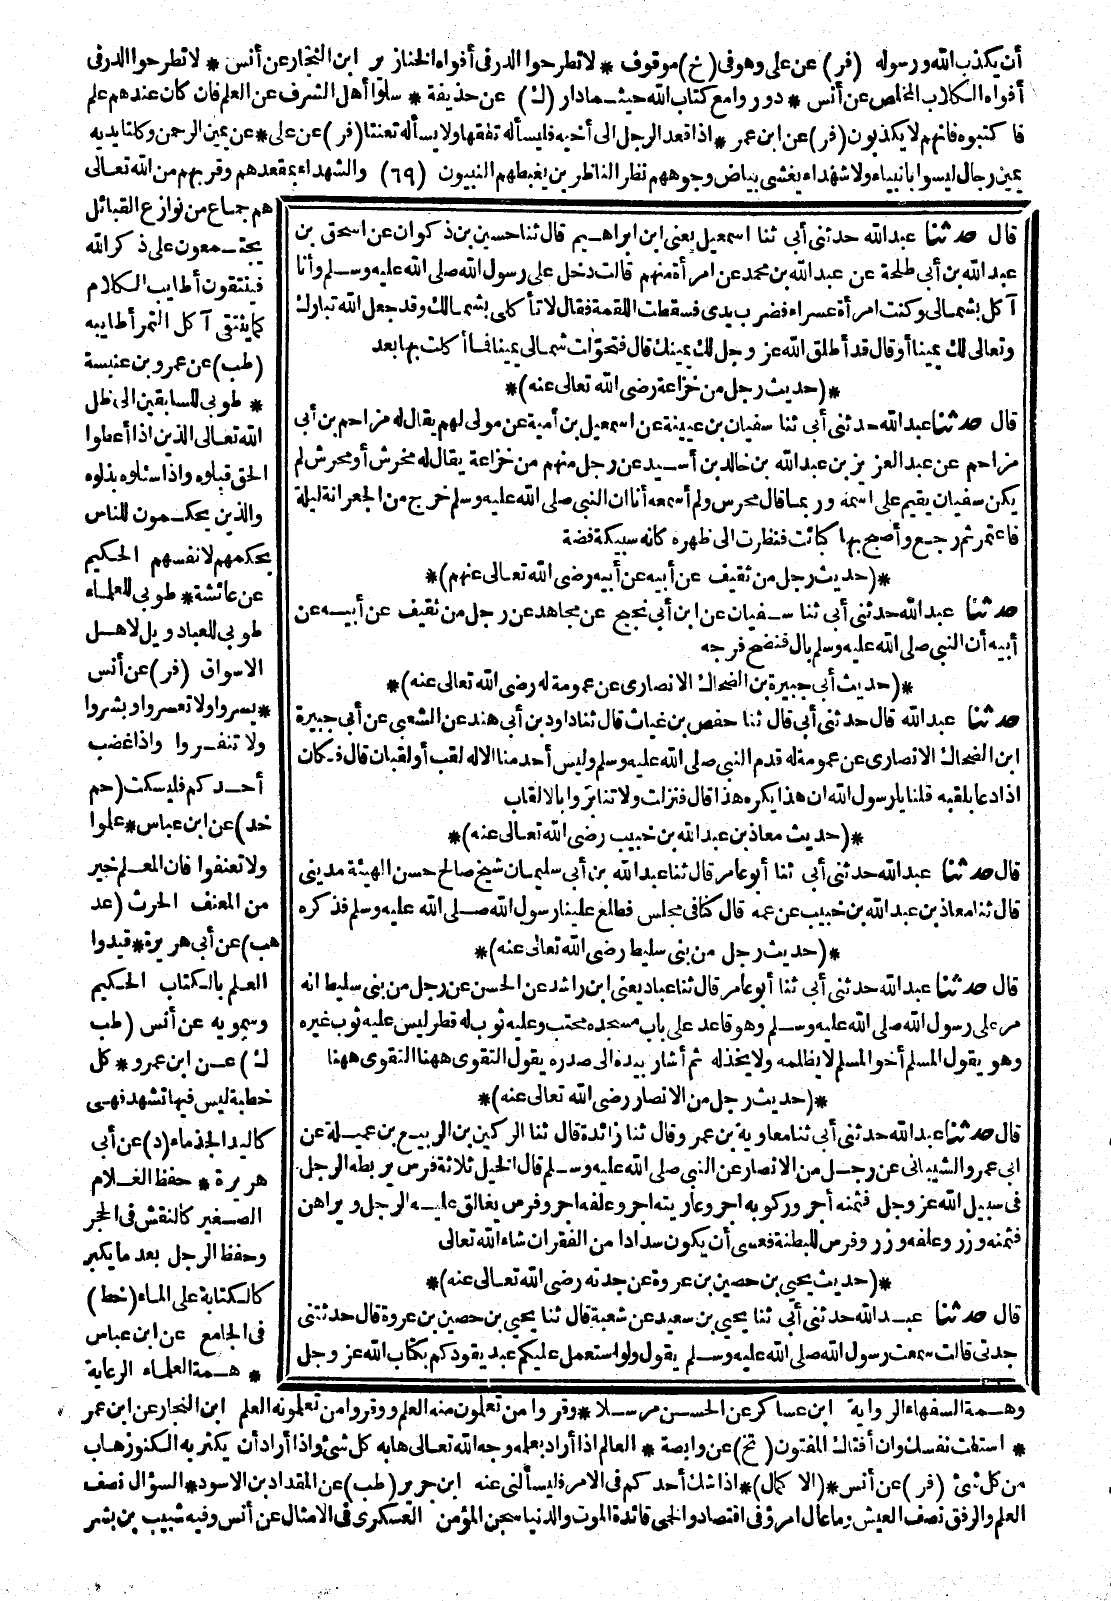 أن يكذب الله ورسوله (فر) عن على وهو فى (خ) موقوف * لا تطرحوا الدر فى أفواه الخنازير ابن النجار عن أنس * لا تطرحوا الدر فى
أفواه الكلاب المخلص عن أنس * دوروا مع كتاب الله حيثما دار (ك) عن حذيفة * سلوا أهل الشرف عن العلم فان كان عندهم علم
فاكتبوه فانهم لا يكذبون (فر) عن ابن عمر * اذا قعد الرجل الى أخيه فليسأله تفقها ولا يسأله تعنتا (فر) عن على * عن يمين الرحمن وكلتا يديه
يمين رجال ليسوا بانبياء ولا شهداء يغشى بياض وجوههم نظر الناظرين يغبطهم النبيون (٦٩) والشهداء بمقعدهم وقربهم من الله تعالى
هم جماع من نوازع القبائل
يجتمعون على ذكر الله
فينتقون أطايب الكلام
كما ينتقى آكل التمر أطايبه
(طب) عن عمرو بن عنبسة
* طوبى للسابقين الى ظل
الله تعالى الذين اذا أعطوا
الحق قبلوه واذا سئلوه بذلوه
والذين يحكمون للناس
بحكمهم لانفسهم الحكيم
عن عائشة * طوبى للعلماء
طوبى للعباد ويل لاهل
الاسواق (فر) عن أنس
* يسروا ولا تعسروا وبشروا
ولا تنفروا واذا غضب
أحدكم فليسكت (حم
خد) عن ابن عباس * علموا
ولا تعنفوا فان المعلم خير
من المعنف الحرث (عد
هب) عن أبى هريرة * قيدوا
العلم بالكتاب الحكيم
وسمويه عن أنس (طب
ك) عن ابن عمرو * كل
خطبة ليس فيها تشهد فهى
كاليد الجذماء (د) عن أبى
هريرة * حفظ الغلام
الصغير كالنقش فى الحجر
وحفظ الرجل بعد ما يكبر
كالكتابة على الماء (خط)
فى الجامع عن ابن عباس
* همة العلماء الرعاية
قال حدثنا عبد الله حدثنى أبى ثنا اسمعيل يعنى ابن ابراهيم قال ثنا حسين بن ذكوان عن اسحق بن
عبد الله بن أبى طلحة عن عبد الله بن محمد عن امرأة منهم قالت دخل على رسول الله صلى الله عليه وسلم وأنا
آكل بشمالى وكنت امرأة عسراء فضرب يدى فسقطت اللقمة فقال لا تأكلى بشمالك وقد جعل الله تبارك
وتعالى لك يمينا أو قال قد أطلق الله عز وجل لك يمينك قال فتحوّلت شمالى يمينا فما أكلت بها بعد
*(حديث رجل من خزاعة رضى الله تعالى عنه)*
قال حدثنا عبد الله حدثنى أبى ثنا سفيان بن عيينة عن اسمعيل بن أمية عن مولى لهم يقال له مزاحم بن أبى
مزاحم عن عبد العزيز بن عبد الله بن خالد بن أسيد عن رجل منهم من خزاعة يقال له مخرش أو محرش لم
يكن سفيان يقيم على اسمه وربما قال محرس ولم أسمعه أنا ان النبى صلى الله عليه وسلم خرج من الجعرانة ليلة
فاعتمر ثم رجع وأصبح بها كبائت فنظرت الى ظهره كانه سبيكة فضة
*(حديث رجل من ثقيف عن أبيه عن أبيه رضى الله تعالى عنهم)*
حدثنا عبد الله حدثنى أبى ثنا سفيان عن ابن أبى نجيح عن مجاهد عن رجل من ثقيف عن أبيه عن
أبيه أن النبى صلى الله عليه وسلم بال فنضح فرجه
*(حديث أبى جبيرة بن الضحاك الانصارى عن عمومة له رضى الله تعالى عنه)*
حدثنا عبد الله قال حدثنى أبى قال ثنا حفص بن غياث قال ثنا داود بن أبى هند عن الشعبى عن أبى جبيرة
ابن الضحاك الانصارى عن عمومة له قدم النبى صلى الله عليه وسلم وليس أحد منا الا له لقب أو لقبان قال فكان
اذا دعا بلقبه قلنا يا رسول الله ان هذا يكره هذا قال فنزلت ولا تنابزوا بالالقاب
*(حديث معاذ بن عبد الله بن خبيب رضى الله تعالى عنه)*
قال حدثنا عبد الله حدثنى أبى ثنا أبو عامر قال ثنا عبد الله بن أبى سليمان شيخ صالح حسن الهيئة مدينى
قال ثنا معاذ بن عبد الله بن خبيب عن عمه قال كنا فى مجلس فطلع علينا رسول الله صلى الله عليه وسلم فذكره
*(حديث رجل من بنى سليط رضى الله تعالى عنه)*
قال حدثنا عبد الله حدثنى أبى ثنا أبو عامر قال ثنا عباد يعنى ابن راشد عن الحسن عن رجل من بنى سليط انه
مر على رسول الله صلى الله عليه وسلم وهو قاعد على باب مسجده محتب وعليه ثوب له قطر ليس عليه ثوب غيره
وهو يقول المسلم أخو المسلم لا يظلمه ولا يخذله ثم أشار بيده الى صدره يقول التقوى ههنا التقوى ههنا
*(حديث رجل من الانصار رضى الله تعالى عنه)*
قال حدثنا عبد الله حدثنى أبى ثنا معاوية بن عمر وقال ثنا زائدة قال ثنا الركين بن الربيع بن عميلة عن
ابى عمرو الشيبانى عن رجل من الانصار عن النبى صلى الله عليه وسلم قال الخيل ثلاثة فرس يربطه الرجل
فى سبيل الله عز وجل فثمنه أجر وركوبه اجر وعاريته اجر وعلفه اجر وفرس يغالق عليه الرجل ويراهن
فثمنه وزر وعلفه وزر وفرس للبطنة فعسى أن يكون سدادا من الفقر ان شاء الله تعالى
*(حديث يحيى بن حصين بن عروة عن جدته رضى الله تعالى عنه)*
قال حدثنا عبد الله حدثنى أبى ثنا يحيى بن سعيد عن شعبة قال ثنا يحيى بن حصين بن عروة قال حدثتنى
جدتى قالت سمعت رسول الله صلى الله عليه وسلم يقول ولو استعمل عليكم عبد يقودكم بكتاب الله عز وجل
وهمة السفهاء الرواية ابن عساكر عن الحسن مرسلا * وقروا من تعلمون منه العلم ووقروا من تعلمونه العلم ابن النجار عن ابن عمر
* استفت نفسك وان أفتاك المفتون (تخ) عن وابصة * العالم اذا أراد بعلمه وجه الله تعالى هابه كل شئ واذا أراد أن يكثر به الكنوز هاب
من كل شئ (فر) عن أنس * (الاكمال) * اذا شك أحدكم فى الامر فليسألنى عنه ابن جرير (طب) عن المقداد بن الاسود * السؤال نصف
العلم والرفق نصف العيش وما عال امرؤ فى اقتصاد والحمى قائدة الموت والدنيا سجن المؤمن العسكرى فى الامثال عن أنس وفيه شبيب بن بشر